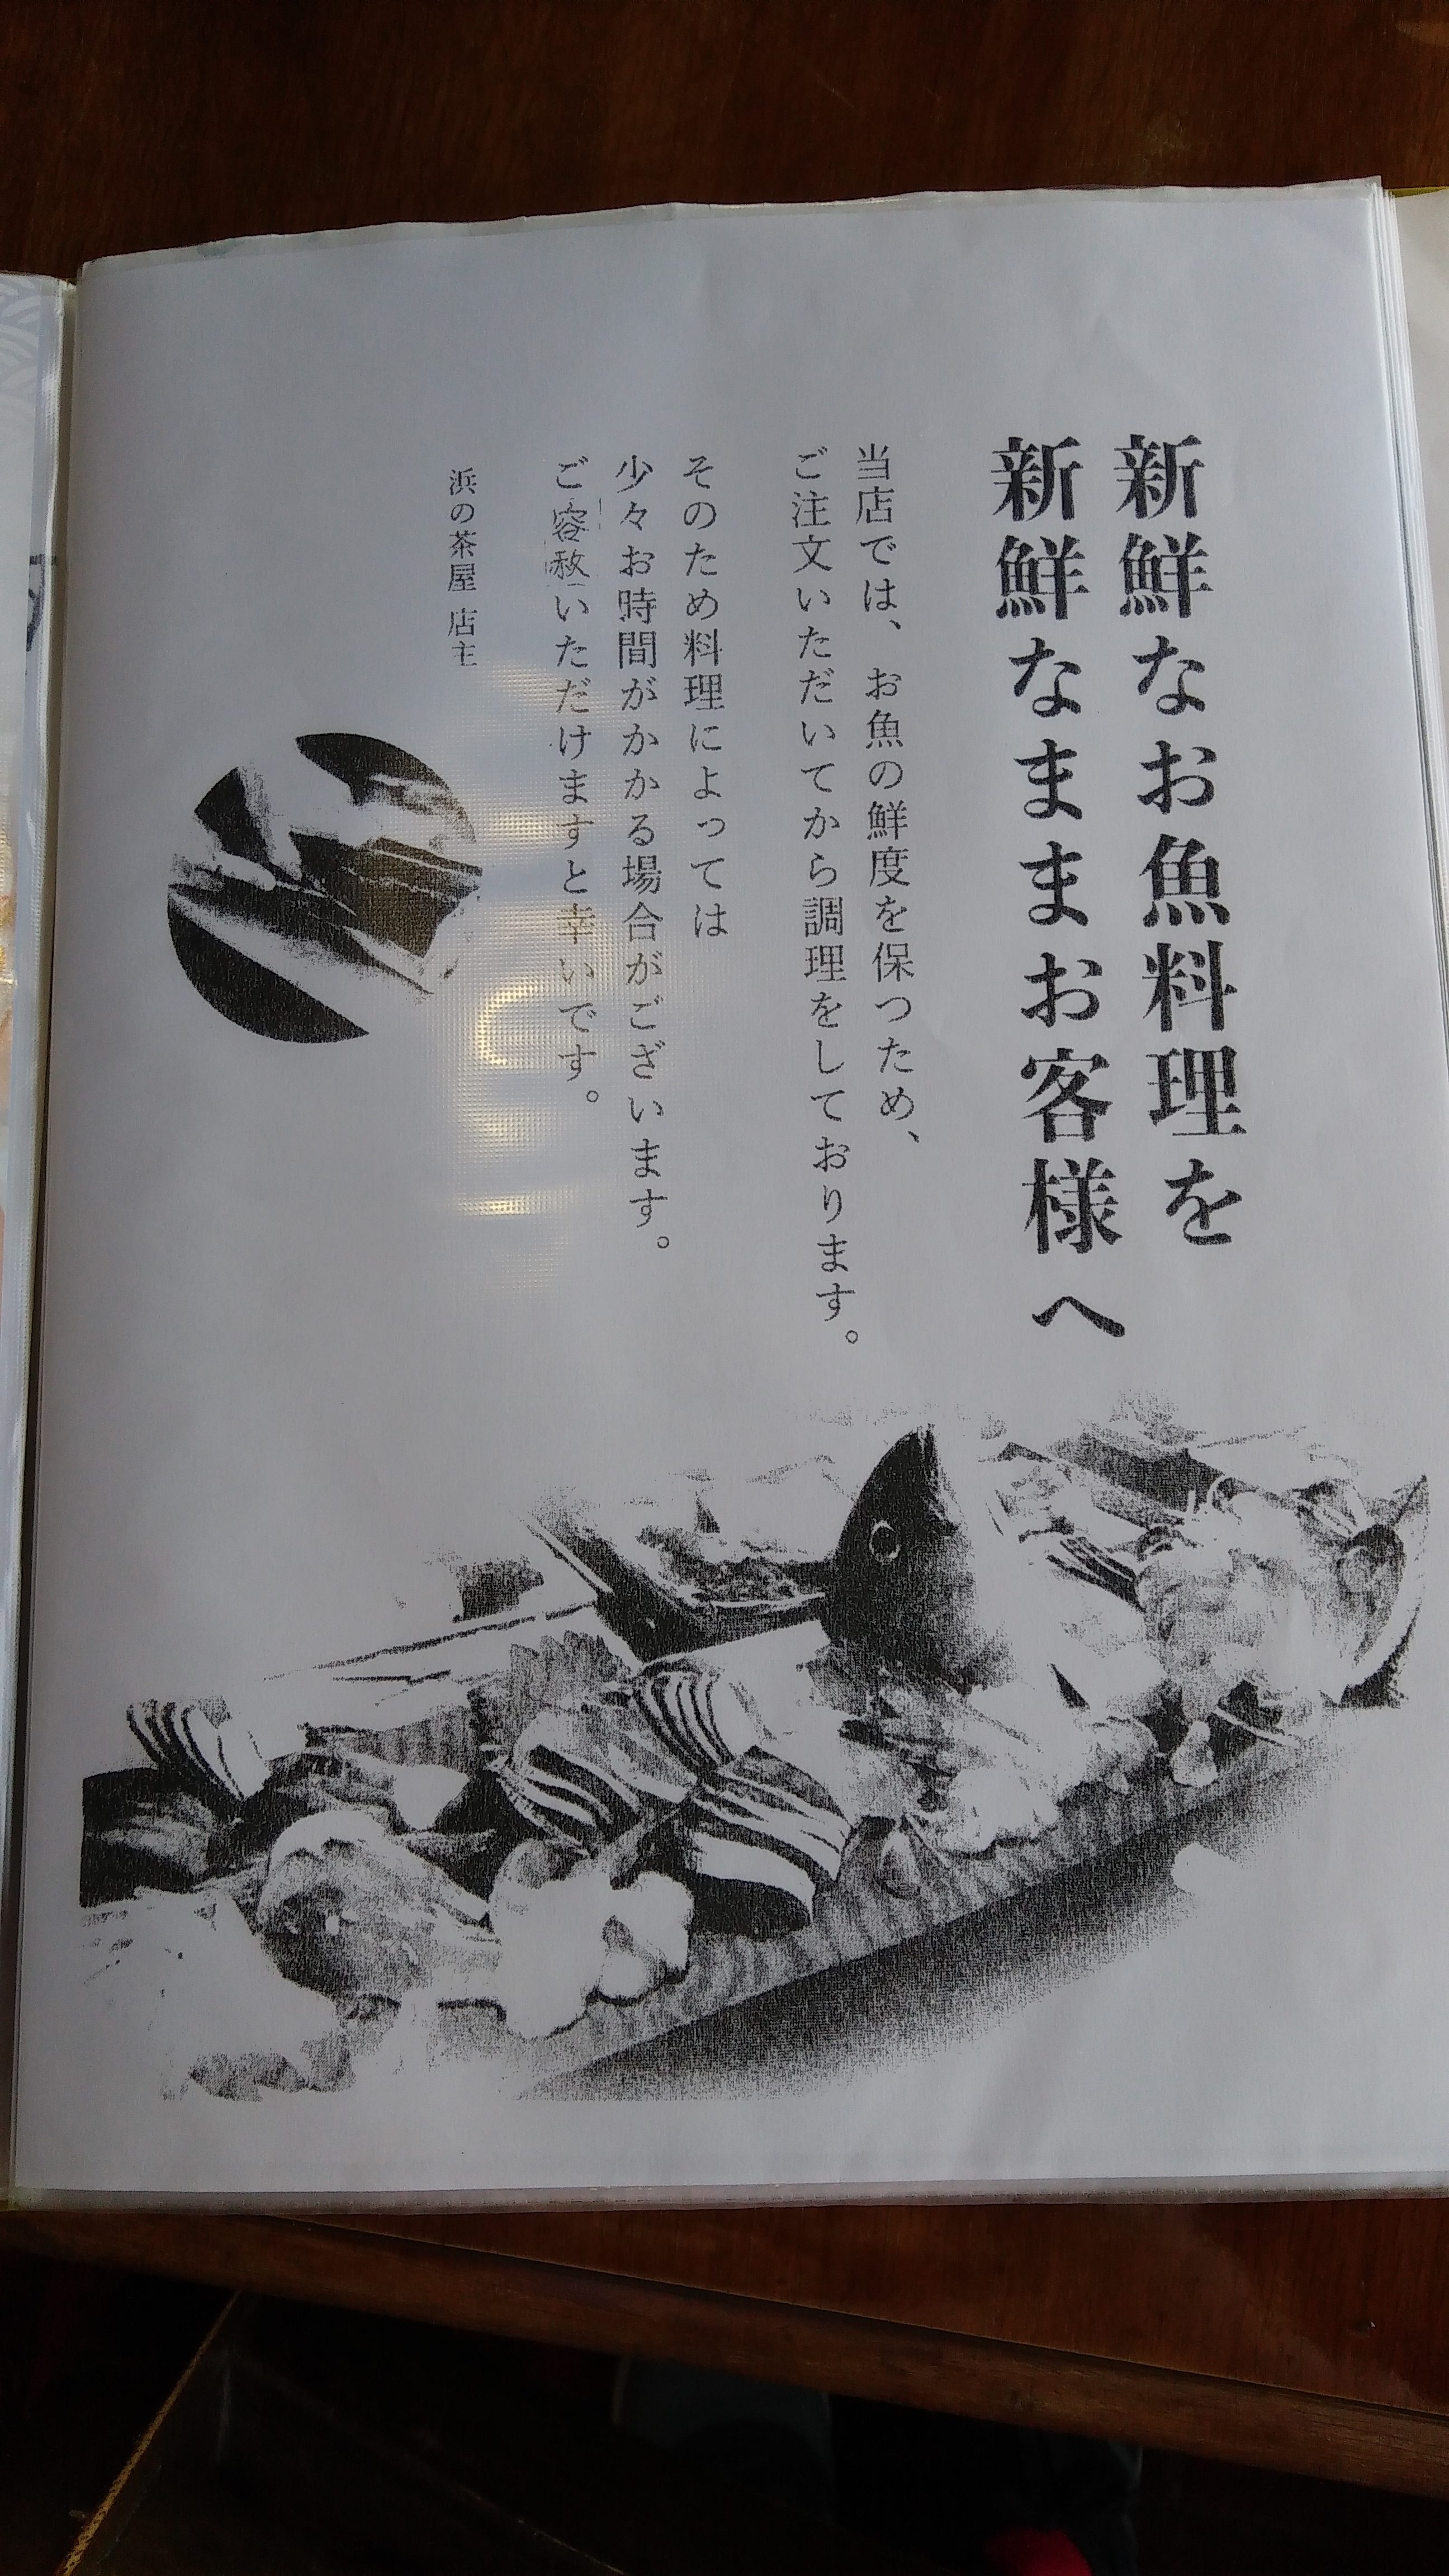 新鮮なお魚料理を
新鮮なままお客様へ
当店では、お魚の鮮度を保つため、
ご注文いただいてから調理をしております。
そのため料理によっては
少々お時間がかかる場合がございます。
ご容赦いただけますと幸いです。
浜の茶屋 店主